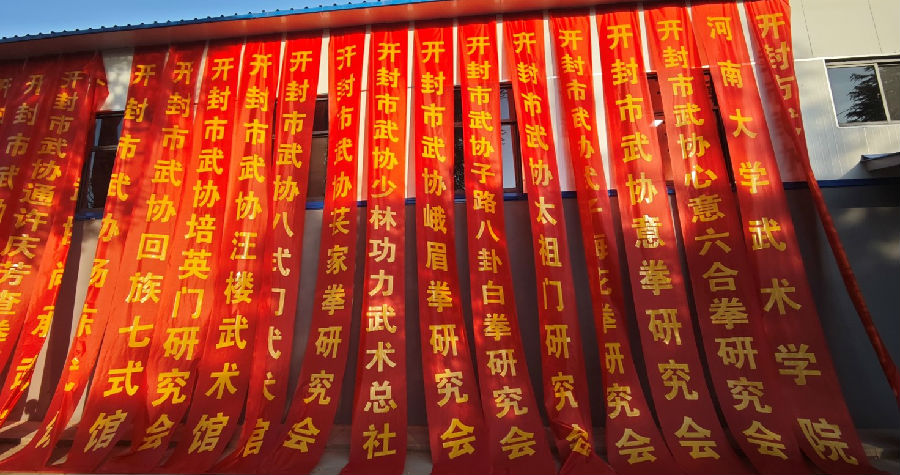 开封市武
开封市武
开封市武协通许庆芳查拳
开封市武协汤
开封市武协回族七式馆
开封市武协培英门研究会
开封市武协汪楼武术馆
开封市武协八式门武术馆
开封市武协苌家拳研究会
开封市武协少林功力武术总社
开封市武协峨眉拳研究会
开封市武协子路八卦白拳研究会
开封市武协太祖门研究会
开封市武协 拳研究会
开封市武协意拳研究会
开封市武协心意六合拳研究会
河南大学武术学院
开封市